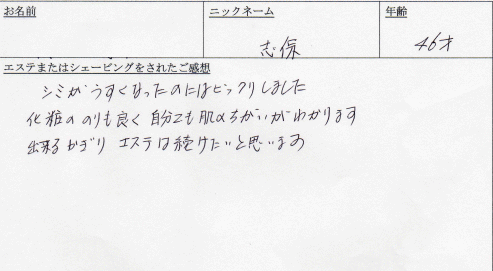 お名前 ニックネーム 年齢
志保 46才
エステまたはシェービングをされたご感想
シミがうすくなったのにはビックリしました
化粧ののりも良く自分でも肌のちがいがわかります
出来るかぎり エステは続けたいと思います